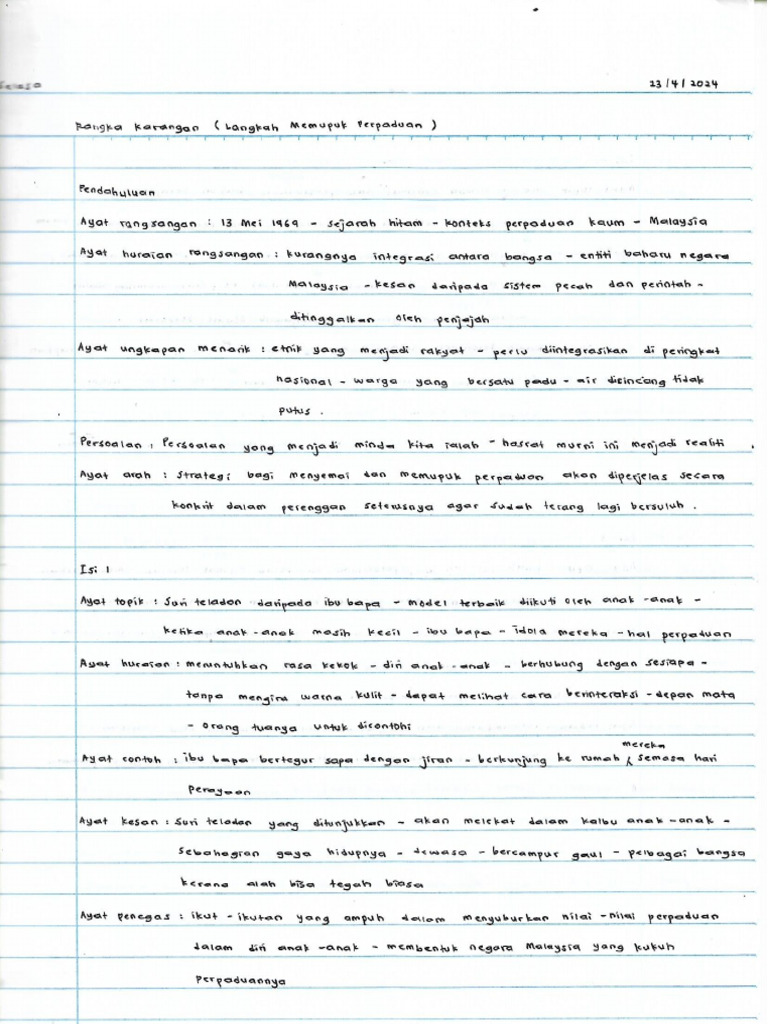 23/4/2024
Rangka Karangan (Langkah Memupuk Perpaduan)
Pendahuluan
Ayat rangsangan : 13 Mei 1969 - sejarah hitam - konteks perpaduan kaum - Malaysia
Ayat huraian rangsangan : kurangnya integrasi antara bangsa - entiti baharu negara
Malaysia - kesan daripada sistem pecah dan perintah -
ditinggalkan oleh penjajah
Ayat ungkapan menarik : etnik yang menjadi rakyat - perlu diintegrasikan di peringkat
nasional - warga yang bersatu padu - air dicincang tidak
putus.
Persoalan : Persoalan yang menjadi minda kita ialah - hasrat murni ini menjadi realiti
Ayat arah : Strategi bagi menyemai dan memupuk perpaduan akan diperjelas secara
konkrit dalam perenggan seterusnya agar sudah terang lagi bersuluh.
Isi 1
Ayat topik : Suri teladan daripada ibu bapa - model terbaik diikuti oleh anak-anak -
ketika anak-anak masih kecil - ibu bapa - idola mereka - hal perpaduan
Ayat huraian : meruntuhkan rasa kekok - diri anak-anak - berhubung dengan sesiapa -
tanpa mengira warna kulit - dapat melihat cara berinteraksi - depan mata
- orang tuanya untuk dicontohi
Ayat contoh : ibu bapa bertegur sapa dengan jiran - berkunjung ke rumah mereka semasa hari
Perayaan
Ayat kesan : Suri teladan yang ditunjukkan - akan melekat dalam kalbu anak-anak -
sebahagian gaya hidupnya - dewasa - bercampur gaul - pelbagai bangsa
kerana alah bisa tegah biasa
Ayat penegas : ikut-ikutan yang ampuh dalam menyuburkan nilai-nilai perpaduan
dalam diri anak-anak - membentuk negara Malaysia yang kukuh
Perpaduannya